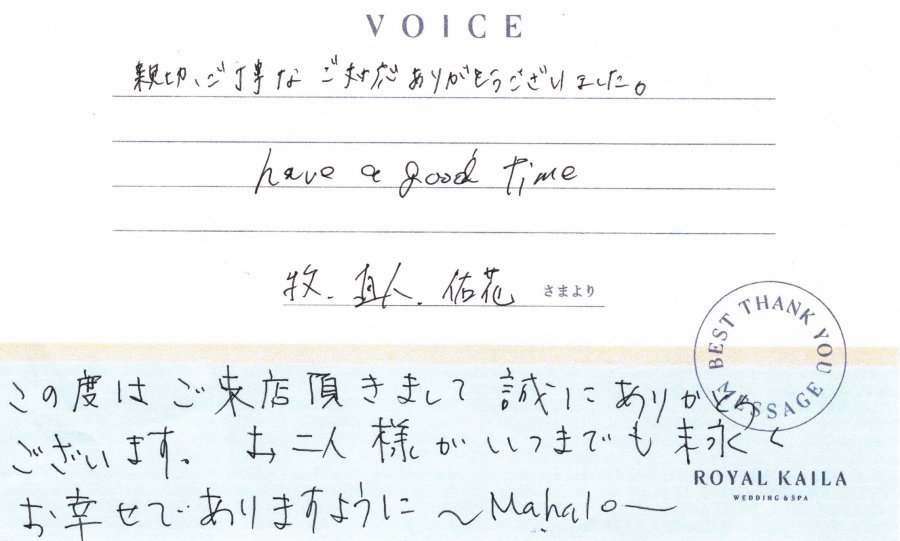 VOICE
親切、ご丁寧なご対応ありがとうございました。
have a good time
牧.直人.佑花 さまより
BEST THANK YOU MESSAGE
この度はご来店頂きまして誠にありがとう
ございます。お二人様がいつまでも末永く
お幸せでありますように ～Mahalo～
ROYAL KAILA
WEDDING & SPA